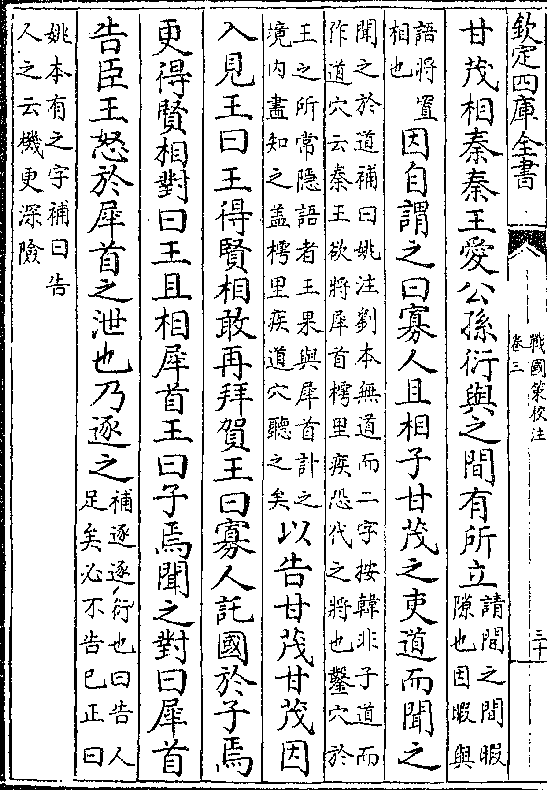 欽定四庫全書
戰國策校注
卷三
三十
甘茂相秦秦王愛公孫衍與之間有所立請間之間暇
隙也因暇與
語將置
相也因自謂之曰寡人且相子甘茂之吏道而聞之
聞之於道補曰姚注劉本無道而二字按韓非子道而
作道穴云秦王欲將犀首樗里疾恐代之將也鑿穴於
王之所常隠語者王果與犀首計之
境内盡知之盖樗里疾道穴聽之矣以告甘茂甘茂因
入見王曰王得賢相敢再拜賀王曰寡人託國於子焉
更得賢相對曰王且相犀首王曰子焉聞之對曰犀首
告臣王怒於犀首之泄也乃逐之補逐逐衍也曰告人
足矣必不告已正曰
姚本有之字補曰告
人之云機更深險